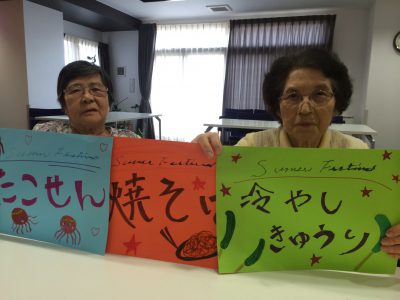 Sumer Festival
たこせん
Sumer Festival
焼そば
Sumer Festival
冷やし
きゅうり